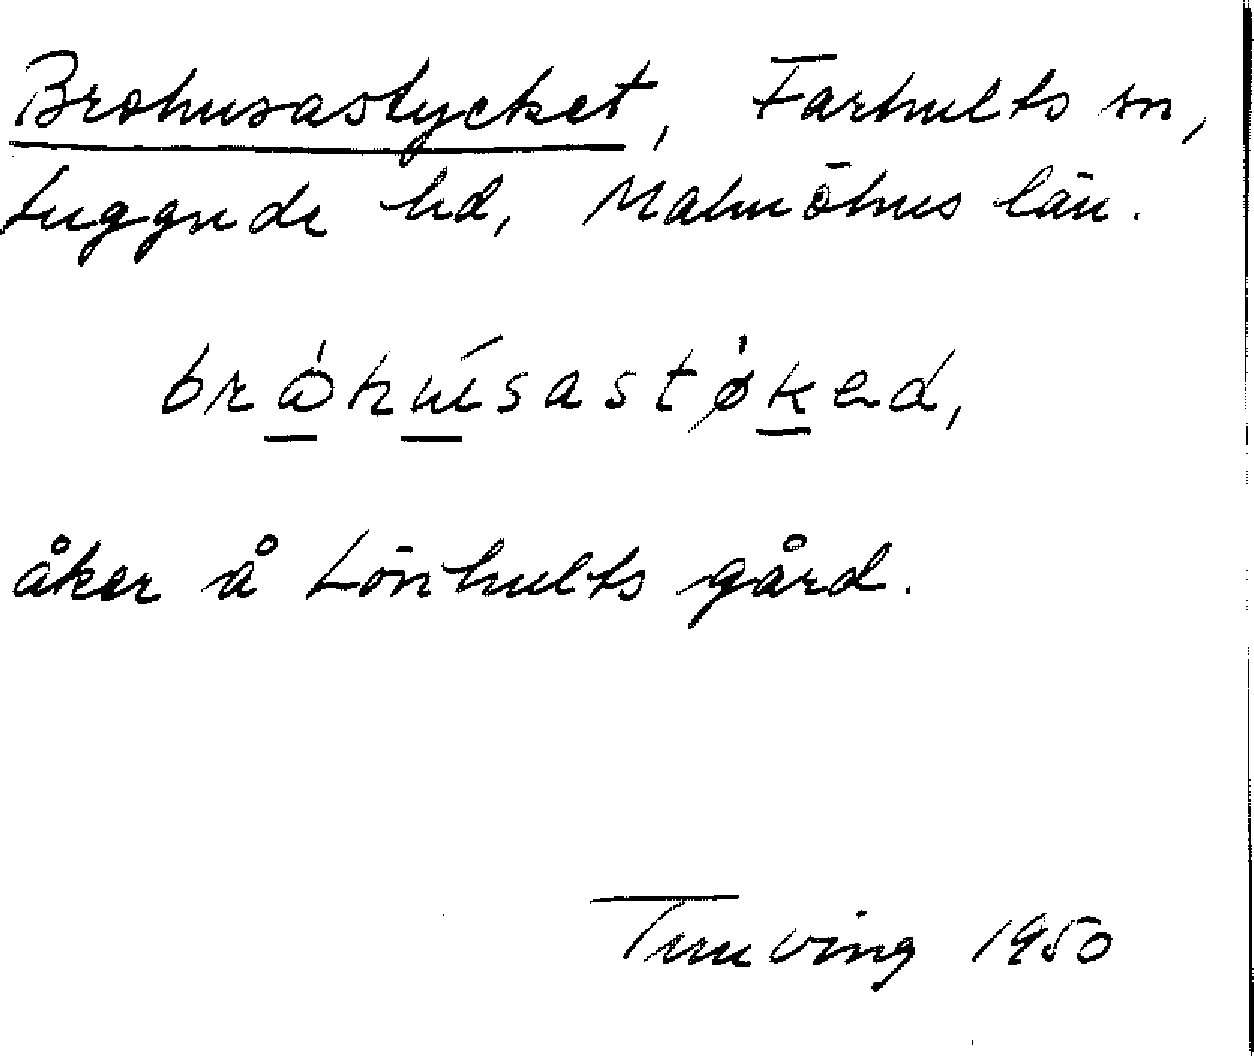 Brohusastycket, Farhults sn,
Luggude hd, Malmöhus län.
bråhúsastøked,
åker å Lönhults gård.
Tuneving 1950